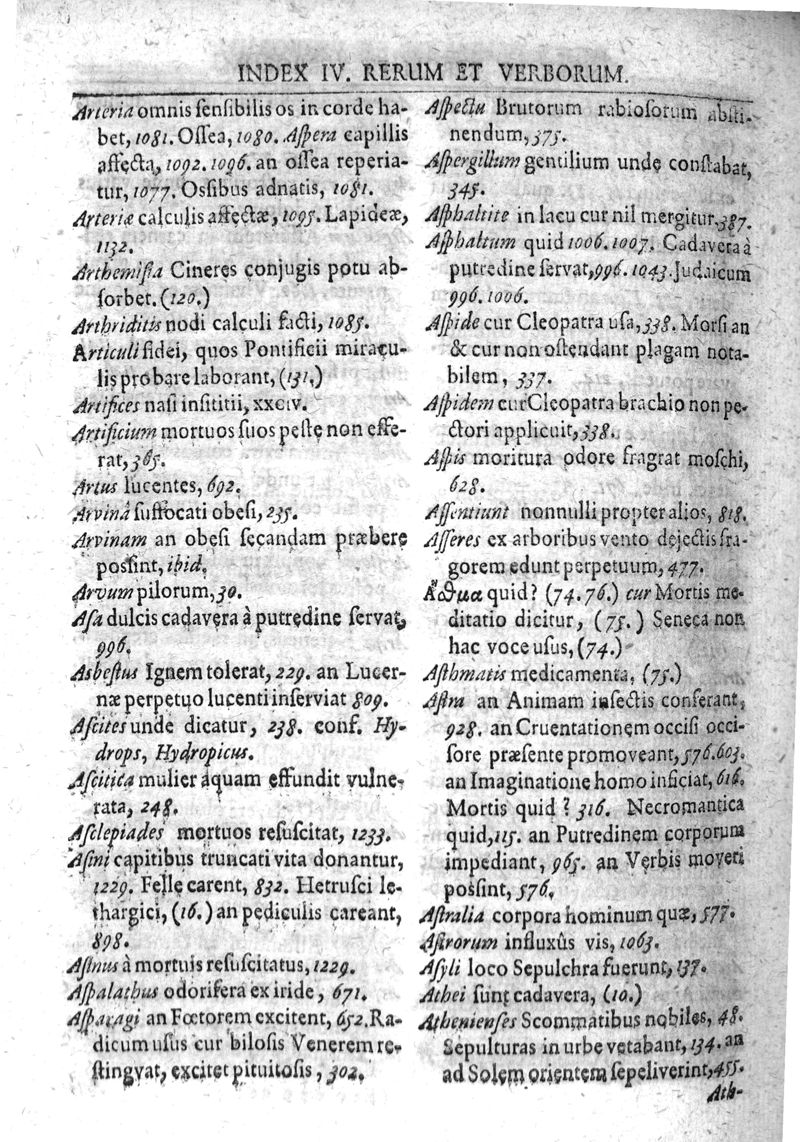 INDEX IV. RERUM ET VERBORUM.
Arteria omnis ſenſibilis os in corde ha-
bet, 1081. Oſſea, 1080. Aſpera capillis
affecta, 1092. 1096. an oſſea reperia-
tur, 1077. Oſſibus adnatis, 1081.
Arteriæ calculis affectæ, 1095. Lapideæ,
1132.
Arthemiſia Cineres conjugis potu ab-
ſorbet. (120.)
Arthriditis nodi calculi facti, 1085.
Articuli fidei, quos Pontificii miracu-
lis probare laborant, (131.)
Artifices naſi inſititii, xxciv.
Artificium mortuos ſuos peſte non effe-
rat, 365.
Artus lucentes, 692.
Arvinâ ſuffocati obeſi, 235.
Arvinam an obeſi ſecandam præbere
poſſint, ibid.
Arvum pilorum, 30.
Aſa dulcis cadavera à putredine ſervat,
996.
Asbeſtus Ignem tolerat, 229. an Lucer-
næ perpetuo lucenti inſerviat 809.
Aſcites unde dicatur, 238. conf. Hy-
drops, Hydropicus.
Aſcitica mulier aquam effundit vulne-
rata, 248.
Aſclepiades mortuos reſuſcitat, 1233.
Aſini capitibus truncati vita donantur,
1229. Felle carent, 832. Hetruſci le-
thargici, (16.) an pediculis careant,
898.
Aſinus à mortuis reſuſcitatus, 1229.
Aſpalathus odorifera ex iride, 671.
Aſparagi an Fœtorem excitent, 652. Ra-
dicum uſus cur bilosis Venerem re-
ſtingvat, excitet pituitoſis, 302.
Aſpectu Brutorum rabioſorum abſti-
nendum, 375.
Aſpergillum gentilium unde conſtabat,
345.
Aſphaltite in lacu cur nil mergitur, 387.
Aſphaltum quid 1006. 1007. Cadavera à
putredine ſervat, 996. 1043. Judaicum
996. 1006.
Aſpide cur Cleopatra uſa, 338. Morſi an
& cur non oſtendant plagam nota-
bilem, 337.
Aſpidem cur Cleopatra brachio non pe-
ctori applicuit, 338.
Aſpis moritura odore fragrat moſchi,
628.
Aſſentiunt nonnulli propter alios, 818.
Aſſeres ex arboribus vento dejectis fra-
gorem edunt perpetuum, 477.
quid? (74. 76.) cur Mortis me-
ditatio dicitur, (75.) Seneca non
hac voce uſus, (74.)
Aſthmatis medicamenta, (75.)
Aſtra an Animam inſectis conferant,
928. an Cruentationem occiſi occi-
ſore præſente promoveant, 576. 603.
an Imaginatione homo inficiat, 616.
Mortis quid? 316. Necromantica
quid, 115. an Putredinem corporum
impediant, 965. an Verbis moveri
poſſint, 576.
Aſtralia corpora hominum quæ, 577.
Aſtrorum influxûs vis, 1063.
Aſyli loco Sepulchra fuerunt, 137.
Athei ſunt cadavera, (10.)
Athenienſes Scommatibus nobiles, 48.
Sepulturas in urbe vetabant, 134. an
ad Solem orientem ſepeliverint, 455.
Ath-